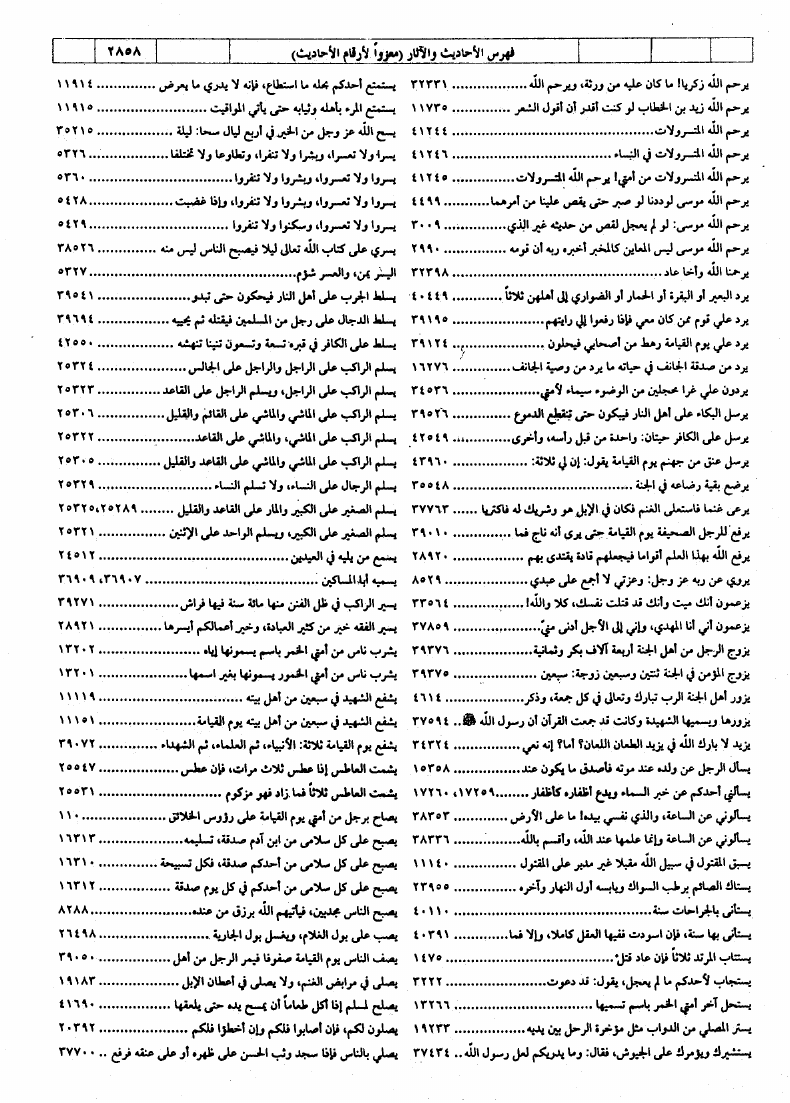 فهرس الأحاديث والآثار (معزواً لأرقام الأحاديث)
٢٨٥٨
يرحم الله زكريا! ما كان عليه من ورثة، ويرحم الله .................. ٣٢٣٣١
يرحم الله زيد بن الخطاب لو كنت أقدر أن أقول الشعر ............. ١١٧٣٥
يرحم الله المتسرولات ............................. ٤١٢٤٤
يرحم الله المتسرولات في النساء ............................. ٤١٢٤٦
يرحم الله المتسرولات من أمتي! يرحم الله المتسرولات .............. ٤١٢٤٥
يرحم الله موسى لوددنا لو صبر حتى يقص علينا من أمرهما ........... ٤٤٩٩
يرحم الله موسى: لو لم يعجل لقص من حديثه غير الذي ............. ٣٠٠٩
يرحم الله موسى ليس المعاين كالمخبر أخبره ربه أن قومه ............. ٢٩٩٠
يرحمنا الله وأخا عاد ............................. ٣٢٣٩٨
يرد البعير أو البقرة أو الحمار أو الضواري إلى أهلهن ثلاثاً ............. ٤٠٤٤٩
يرد علي قوم ممن كان معي فإذا رفعوا إلي رايتهم ................ ٣٩١٩٥
يرد علي يوم القيامة رهط من أصحابي فيحلون ................ ٣٩١٢٤
يرد من صدقة الجانف في حياته ما يرد من وصية الجانف ............. ١٦٢٧٦
يردون علي غرا محجلين من الوضوء سيماء لأمتي ................ ٣٤٥٣٦
يرسل البكاء على أهل النار فيبكون حتى تنقطع الدموع ............. ٣٩٥٢٦
يرسل على الكافر حيتان: واحدة من قبل رأسه، وأخرى ............. ٤٢٥٤٩
يرسل عنق من جهنم يوم القيامة يقول: إن لي ثلاثة: ............. ٤٣٩٦٠
يرضع بقية رضاعه في الجنة ............................. ٣٥٥٤٨
يرعى غنما فاستعلى الغنم فكان في الإبل هو وشريك له فاكتريا ...... ٣٧٧٦٣
يرفع للرجل الصحيفة يوم القيامة حتى يرى أنه ناج فما ............. ٣٩٠١٠
يرفع الله بهذا العلم أقواما فيجعلهم قادة يقتدى بهم ............. ٢٨٩٢٠
يروي عن ربه عز وجل: وعزتي لا أجمع على عبدي ................ ٨٥٢٩
يزعمون أنك ميت وأنك قد قتلت نفسك، كلا والله! ............. ٣٣٥٦٤
يزعمون أني أنا المهدي، وإني إلى الأجل أدنى مني ............. ٣٧٨٥٩
يزوج الرجل من أهل الجنة أربعة آلاف بكر وثمانية ............. ٣٩٣٧٦
يزوج المؤمن في الجنة ثنتين وسبعين زوجة: سبعين ............. ٣٩٣٧٥
يزور أهل الجنة الرب تبارك وتعالى في كل جمعة، وذكر ............. ٤٦١٤
يزورها ويسميها الشهيدة وكانت قد جمعت القرآن أن رسول الله ﷺ .. ٣٧٥٩٤
يزيد لا بارك الله في يزيد الطعان اللعان؟ أما؟ إنه نعي ............. ٣٤٣٢٤
يسأل الرجل عن ولده عند موته فأصدق ما يكون عند ............. ١٥٣٥٨
يسألني أحدكم عن خبر السماء ويدع أظفاره كأظفار ....... ١٧٢٥٩، ١٧٢٦٠
يسألوني عن الساعة، والذي نفسي بيده! ما على الأرض ............. ٣٨٣٥٣
يسألوني عن الساعة وإنما علمها عند الله، وأقسم بالله ............. ٣٨٣٣٦
يسبق المقتول في سبيل الله مقبلا غير مدبر على المقتول ............. ١١١٤٠
يستاك الصائم برطب السواك ويابسه أول النهار وآخره ............. ٢٣٩٥٥
يستأنى بالجراحات سنة ............................. ٤٠١١٠
يستأنى بها سنة، فإن اسودت ففيها العقل كاملا، وإلا فما ............. ٤٠٣٩١
يستتاب المرتد ثلاثاً فإن عاد قتل ............................. ١٤٧٥
يستجاب لأحدكم ما لم يعجل، يقول: قد دعوت ............. ٣٢٢٢
يستحل آخر أمتي الخمر باسم تسميها ............................. ١٣٢٦٦
يستر المصلي من الدواب مثل مؤخرة الرحل بين يديه ............. ١٩٢٣٣
يستشيرك ويؤمرك على الجيوش، فقال: وما يدريكم لعل رسول الله .. ٣٧٤٣٤
يستمتع أحدكم بحله ما استطاع، فإنه لا يدري ما يعرض ............. ١١٩١٤
يستمتع المرء بأهله وثيابه حتى يأتي المواقيت ............. ١١٩١٥
يسح الله عز وجل من الخير في أربع ليال سحا: ليلة ............. ٣٥٢١٥
يسرا ولا تعسرا، وبشرا ولا تنفرا، وتطاوعا ولا تختلفا ............. ٥٣٢٦
يسروا ولا تعسروا، وبشروا ولا تنفروا ............................. ٥٣٦٠
يسروا ولا تعسروا، وبشروا ولا تنفروا، وإذا غضبت ............. ٥٤٢٨
يسروا ولا تعسروا، وسكنوا ولا تنفروا ............................. ٥٤٢٩
يسري على كتاب الله تعالى ليلا فيصبح الناس ليس منه ............. ٣٨٥٢٦
اليسر يمن، والعسر شؤم ............................. ٥٣٢٧
يسلط الجرب على أهل النار فيحكون حتى تبدو ............. ٣٩٥٤١
يسلط الدجال على رجل من المسلمين فيقتله ثم يحييه ............. ٣٩٦٩٤
يسلط على الكافر في قبره تسعة وتسعون تنينا تنهشه ............. ٤٢٥٥٠
يسلم الراكب على الراجل والراجل على الجالس ............. ٢٥٣٢٤
يسلم الراكب على الراجل، ويسلم الراجل على القاعد ............. ٢٥٣٢٣
يسلم الراكب على الماشي والماشي على القائم والقليل ............. ٢٥٣٠٦
يسلم الراكب على الماشي، والماشي على القاعد ............. ٢٥٣٢٢
يسلم الراكب على الماشي والماشي على القاعد والقليل ............. ٢٥٣٠٥
يسلم الرجال على النساء، ولا تسلم النساء ............. ٢٥٣٢٩
يسلم الصغير على الكبير والمار على القاعد والقليل ........ ٢٥٢٨٩، ٢٥٣٢٠
يسلم الصغير على الكبير، ويسلم الواحد على الإثنين ............. ٢٥٣٢١
يسمع من يليه في العيدين ............................. ٢٤٥١٢
يسميه أبا المساكين ............................. ٣٦٩٠٧، ٣٦٩٠٩
يسير الراكب في ظل الفنن منها مائة سنة فيها فراش ............. ٣٩٢٧١
يسير الفقه خير من كثير العبادة، وخير أعمالكم أيسرها ............. ٢٨٩٢١
يشرب ناس من أمتي الخمر باسم يسمونها إياه ............. ١٣٢٠٢
يشرب ناس من أمتي الخمور يسمونها بغير اسمها ............. ١٣٢٠١
يشفع الشهيد في سبعين من أهل بيته ............................. ١١١١٩
يشفع الشهيد في سبعين من أهل بيته يوم القيامة ............. ١١١٥١
يشفع يوم القيامة ثلاثة: الأنبياء، ثم العلماء، ثم الشهداء ............. ٣٩٠٧٢
يشمت العاطس إذا عطس ثلاث مرات، فإن عطس ............. ٢٥٥٤٧
يشمت العاطس ثلاثاً فما زاد فهو مزكوم ............................. ٢٥٥٣١
يصاح برجل من أمتي يوم القيامة على رؤوس الخلائق ............. ١١٠
يصبح على كل سلامى من ابن آدم صدقة، تسليمه ............. ١٦٣١٣
يصبح على كل سلامى من أحدكم صدقة، فكل تسبيحة ............. ١٦٣١٠
يصبح على كل سلامى من أحدكم في كل يوم صدقة ............. ١٦٣١٢
يصبح الناس مجدبين، فيأتيهم الله برزق من عنده ............. ٨٢٨٨
يصب على بول الغلام، ويغسل بول الجارية ............. ٢٦٤٩٨
يصف الناس يوم القيامة صفوفا فيمر الرجل من أهل ............. ٣٩٠٥٠
يصلى في مرابض الغنم، ولا يصلى في أعطان الإبل ............. ١٩١٨٣
يصلح لمسلم إذا أكل طعاماً أن يمسح يده حتى يلعقها ............. ٤١٦٩٠
يصلون لكم، فإن أصابوا فلكم وإن أخطؤا فلكم ............. ٢٠٣٩٢
يصلي بالناس فإذا سجد وثب الحسن على ظهره أو على عنقه فرفع .. ٣٧٧٠٠